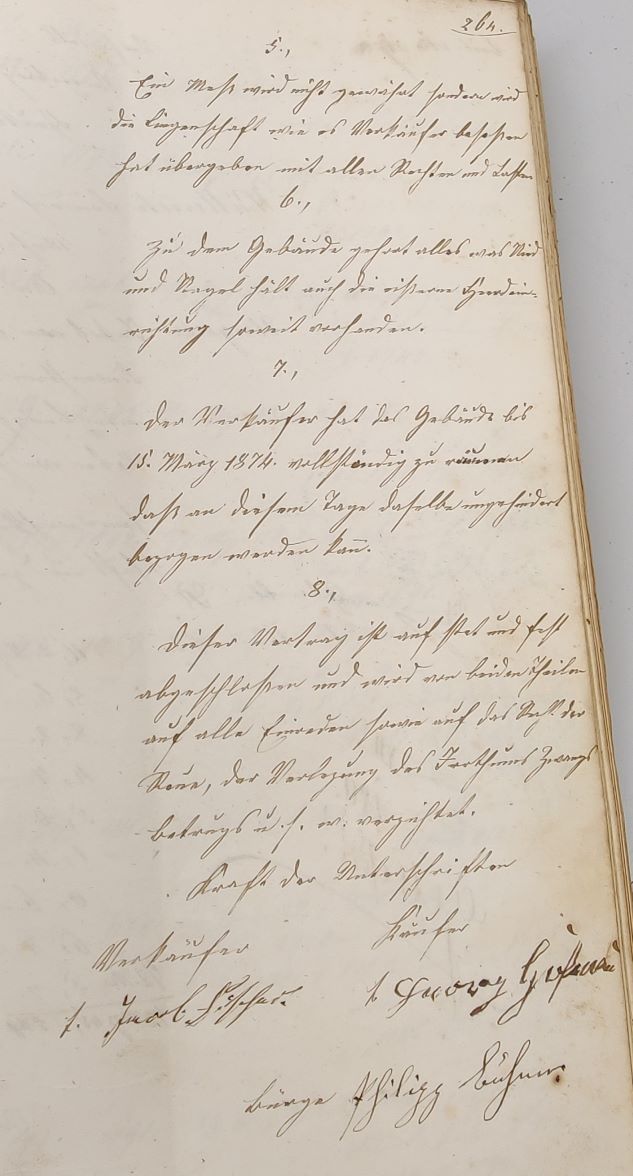 264.
5.,
Ein Maß wird nicht gewährt sondern wird
die Liegenschaft wie es Verkäufer besessen
hat übergeben mit allen Rechten und Lasten
6.,
Zu dem Gebäude gehört alles was Nied
und Nagel hält auch die eiserne Heerdein-
richtung soweit vorhanden.
7.,
Der Verkäufer hat das Gebäude bis
15. März 1874. vollständig zu räumen
daß an diesem Tage daselbe ungehindert
bezogen werden kan̄.
8.,
Dieser Vertrag ist auf stet und fest
abgeschloßen und wird von beiden Theilen
auf alle Einreden sowie auf das der
Reue, der Verletzung des Irrthums Zwangs
betrugs u. s. w. verzichtet.
Kraft der Unterschriften
Verkäufer
Käufer
t. Jacob Fischer.
t. Georg
Bürge Philipp